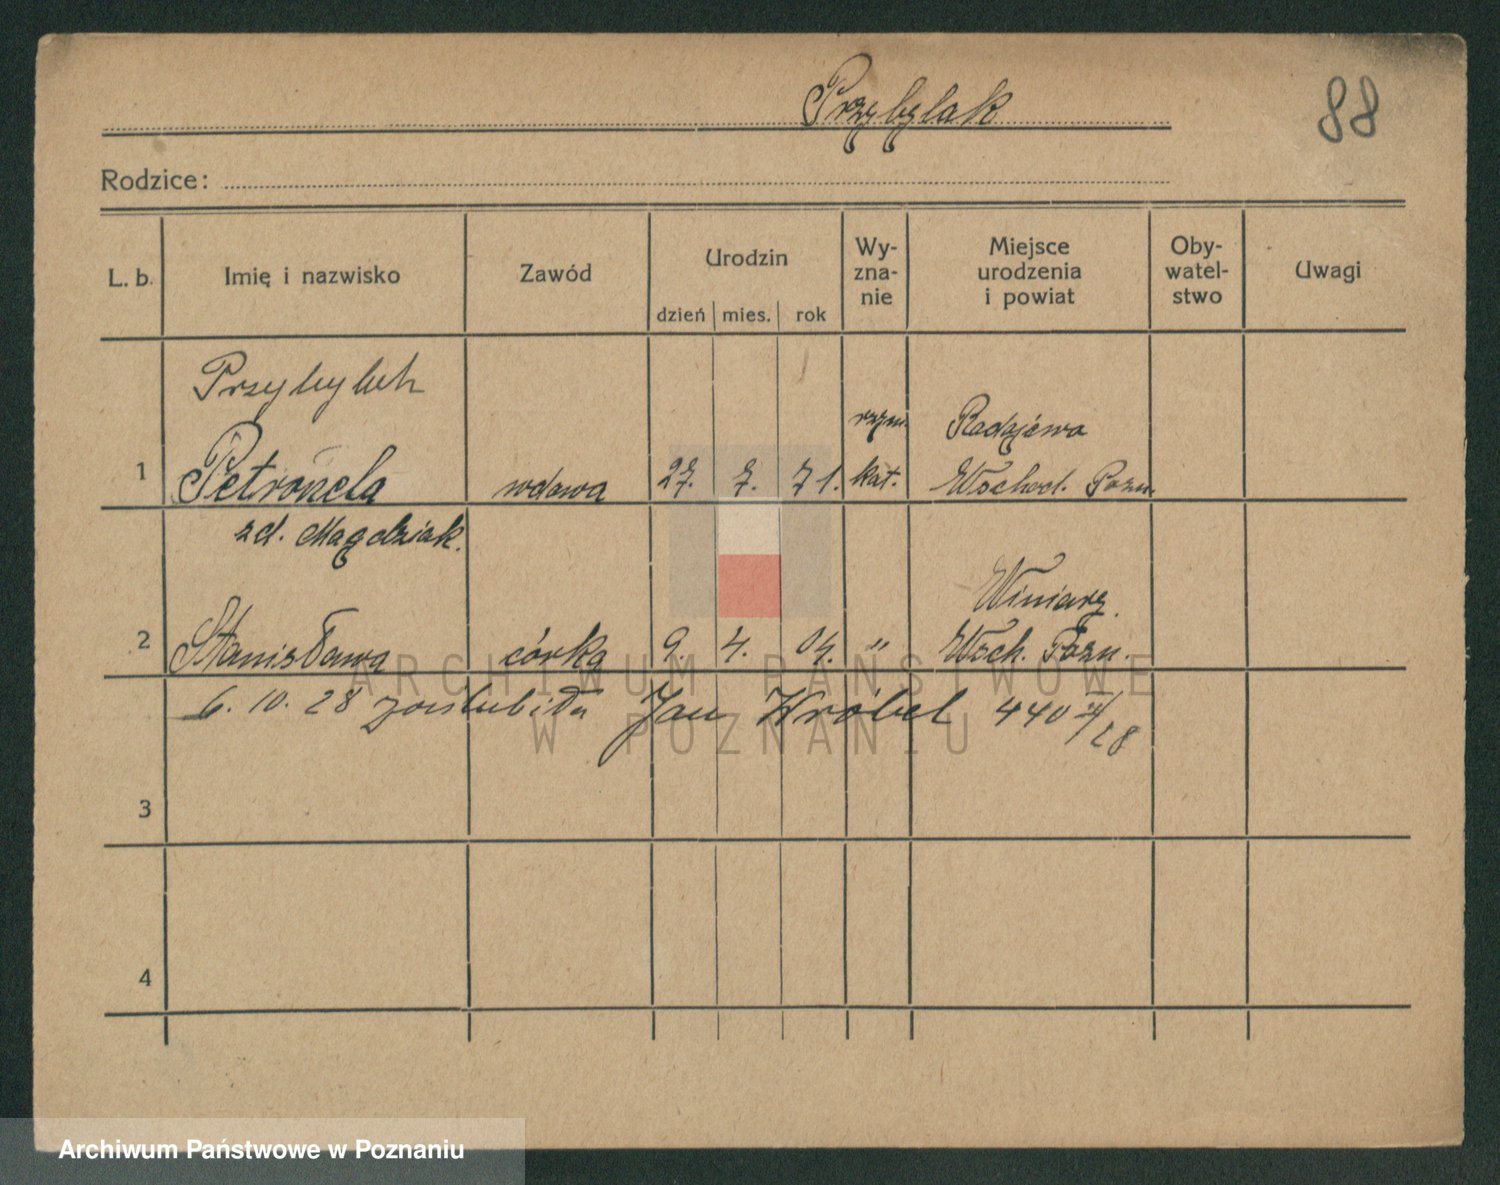 Przybylak
88
Rodzice:
L. b. Imię i nazwisko Zawód Urodzin dzień mies. rok Wy-zna-nie Miejsce urodzenia i powiat Oby-watel-stwo Uwagi
Przybylak
rzym. Radojewa
1 Petronela wdowa 27. 7. 71. kat. Wschod. Pozn.
zd. Magdziak.
Winiary
2 Stanisława córka 9. 4. 04. " Wsch. Pozn.
6. 10. 28 zaślubiła Jan Wróbel 440 /28
3
4
ARCHIWUM PAŃSTWOWE
W POZNANIU
Archiwum Państwowe w Poznaniu